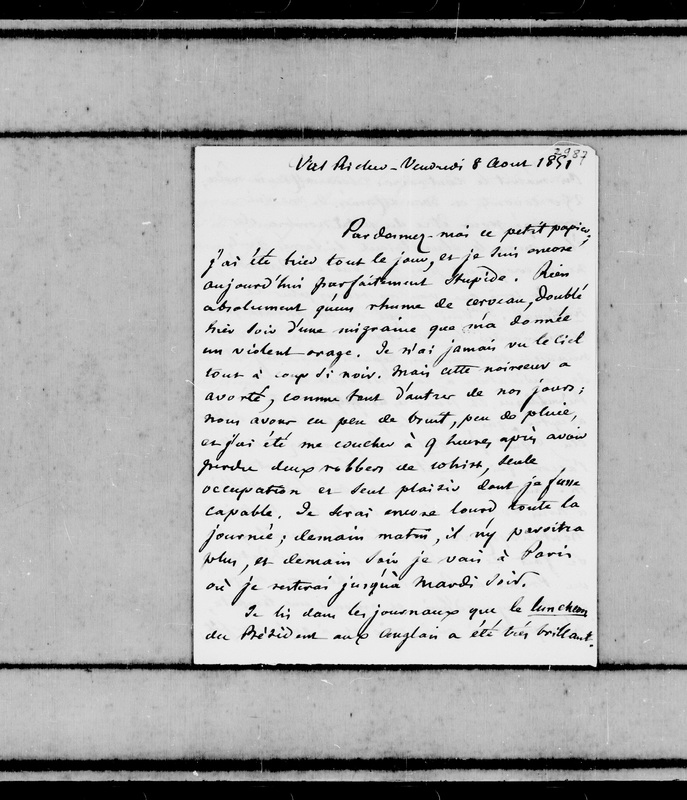 2987
Val Richer - Vendredi 8 Aout 1851
Pardonnez-moi ce petit papier;
j'ai été hier tout le jour, et je suis encore
aujourd'hui parfaitement stupide. Rien
absolument qu'un rhume de cerveau, doublé
hier soir d'une migraine que m'a donnée
un violent orage. Je n'ai jamais vu le ciel
tout à coup si noir. Mais cette noirceur a
avorté, comme tant d'autres de nos jours;
nous avons eu peu de bruit, peu de pluie,
et j'ai été me coucher à 9 heures, après avoir
perdu deux robbers de whist, seule
occupation et seul plaisir dont je fusse
capable. Je serai encore lourd toute la
journée; demain matin, il n'y paroitra
plus, et demain soir je vais à Paris
où je resterai jusqu'à Mardi soir.
Je lis dans les journaux que le luncheon
du Président aux Anglais a été très brillant.